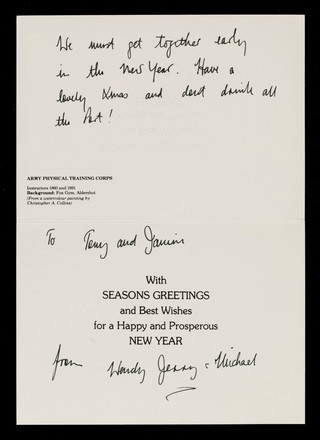 We must get together early
in the New Year. Have a
lovely Xmas and dont drink all
the Port!
ARMY PHYSICAL TRAINING CORPS
Instructors 1860 and 1991
Background: Fox Gym, Aldershot
(From a watercolour painting by
Christopher A. Collins)
To Terry and
With
SEASONS GREETINGS
and Best Wishes
for a Happy and Prosperous
NEW YEAR
from Wendy Jenny & Michael